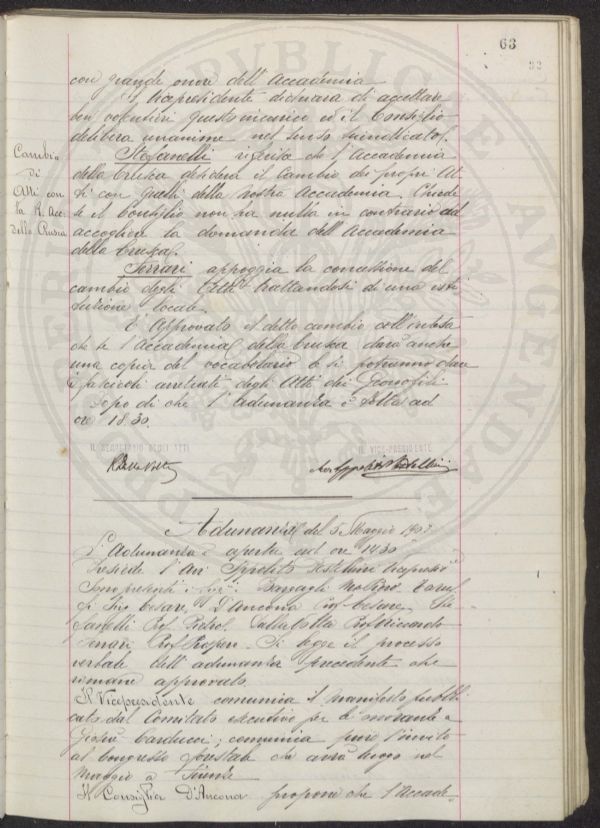 63
32
con grande onore dell'Accademia
Il Vicepresidente dichiara di accettare
ben volentieri questo incarico ed il Consiglio
delibera unanime nel senso suindicato.
Cambio
di
Atti con
la R. Acc.
della Crusca
Stefanelli riferisce che l'Accademia
della Crusca desidera il cambio dei propri At
ti con quelli della nostra Accademia. Chiede
se il Consiglio non ha nulla in contrario ad
accogliere la domanda dell'Accademia
della Crusca.
Ferrari appoggia la concessione del
cambio degli Atti trattandosi di una isti
tuzione locale.
È approvato il detto cambio coll'intesa
che se l'Accademia della Crusca darà anche
una copia del vocabolario le si potranno dare
i fascicoli arretrati degli Atti dei Georgofili.
Dopo di che l'adunanza è tolta ad
ore 18.30.
IL SEGRETARIO DEGLI ATTI
IL VICE-PRESIDENTE
Adunanza del 5 Maggio 1907
L'adunanza è aperta ad ore 14.30
Presiede l'Avv. Ippolito Pestellini Vicepresid
Sono presenti i Sigri
Cesare, D'Ancona Prof. Cesare, Ste
fanelli Prof. Pietro, Dalla Volta Prof. Riccardo
Ferrari Prof. Prospero. Si legge il processo
verbale dell'adunanza precedente che
rimane approvato.
Il Vicepresidente comunica il manifesto pubbli
cato dal Comitato esecutivo per le onoranze a
Giosuè Carducci; comunica pure l'invito
al Congresso forestale che avrà luogo nel
Maggio a Firenze
Il Consiglier D'Ancona propone che l'Accade-
PUBLICAE
AUGENDAE
PROSPERITATI